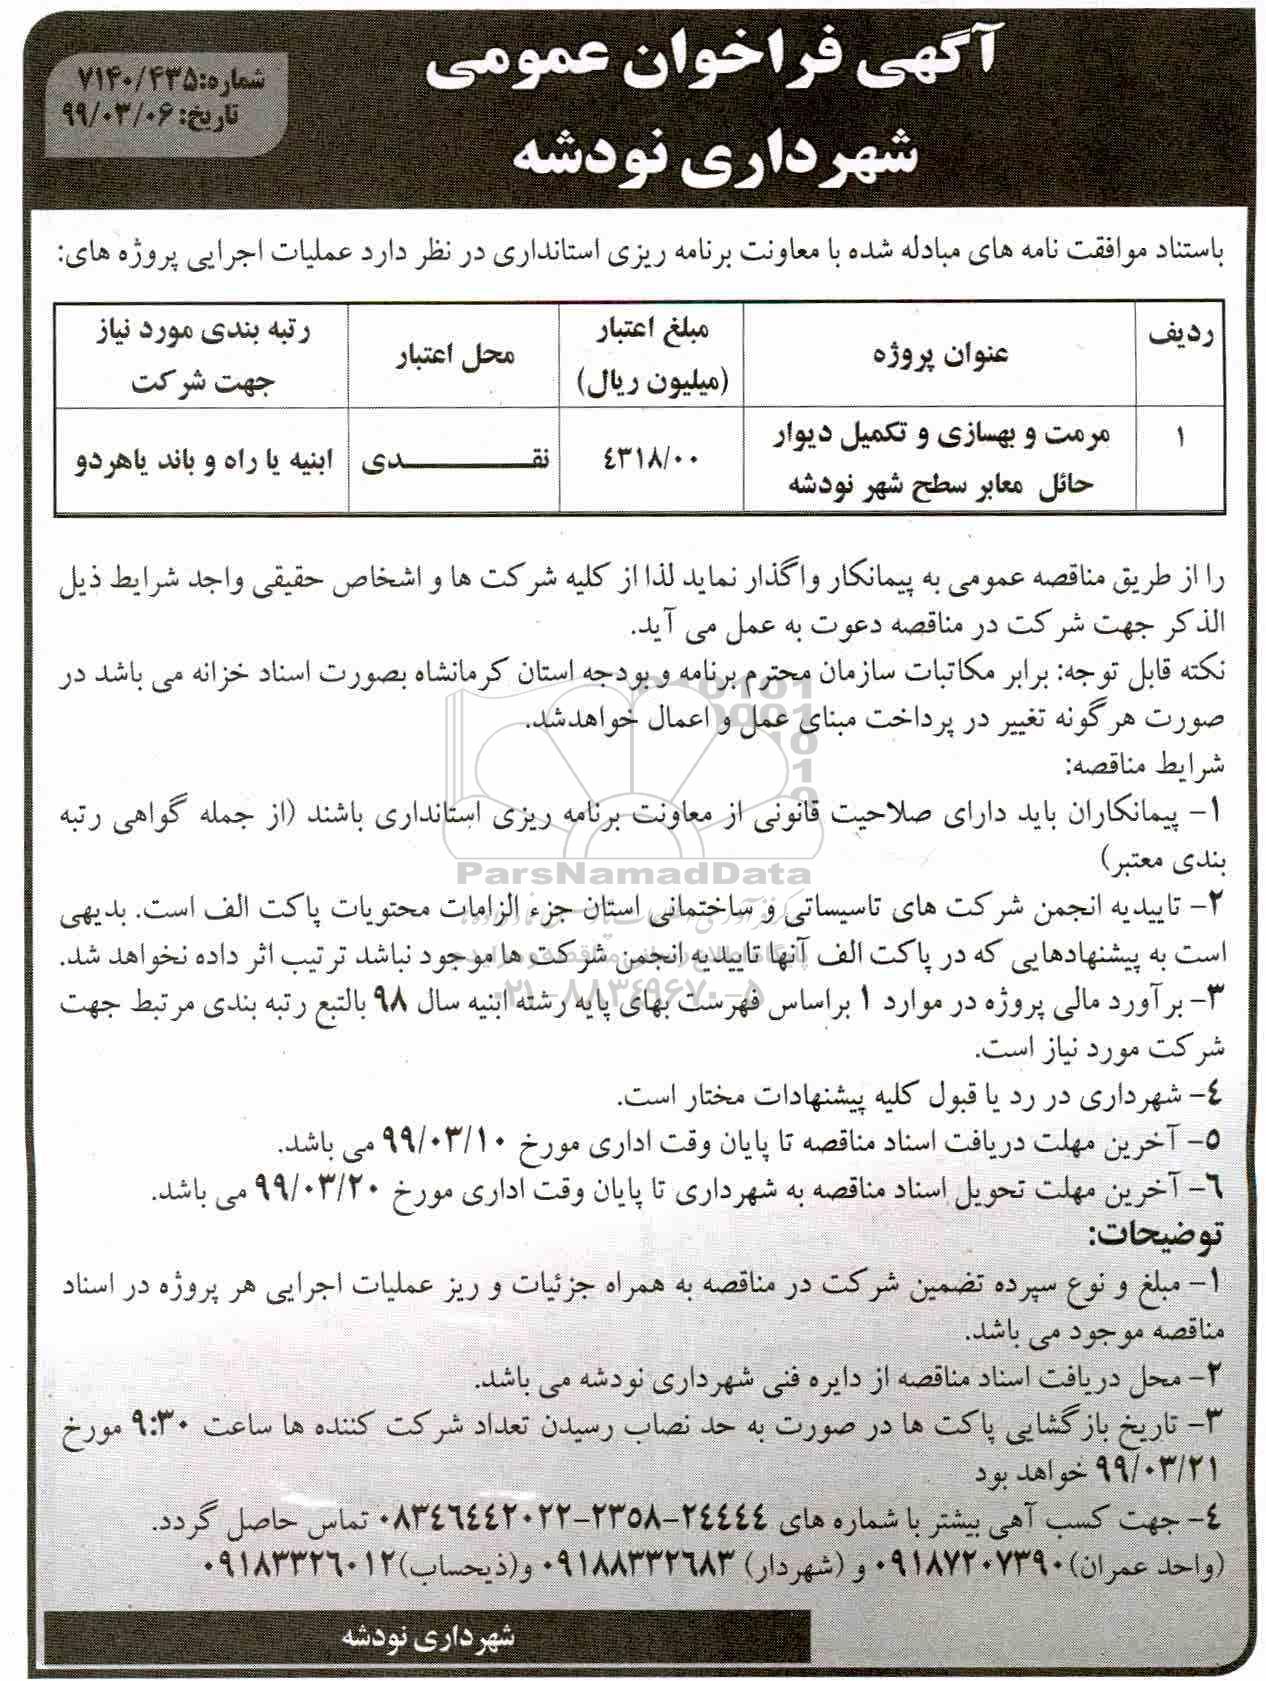 آگهی فراخوان عمومی
شهرداری نودشه
شماره: ۷۱۴۰/۴۳۵
تاریخ: ۹۹/۰۳/۰۶
باستناد موافقت نامه های مبادله شده با معاونت برنامه ریزی استانداری در نظر دارد عملیات اجرایی پروژه های:
ردیف | عنوان پروژه | مبلغ اعتبار (میلیون ریال) | محل اعتبار | رتبه بندی مورد نیاز جهت شرکت
۱ | مرمت و بهسازی و تکمیل دیوار حائل معابر سطح شهر نودشه | ۴۳۱۸/۰۰ | نقــــــــدی | ابنیه یا راه و باند یاهردو
را از طریق مناقصه عمومی به پیمانکار واگذار نماید لذا از کلیه شرکت ها و اشخاص حقیقی واجد شرایط ذیل
الذکر جهت شرکت در مناقصه دعوت به عمل می آید.
نکته قابل توجه: برابر مکاتبات سازمان محترم برنامه و بودجه استان کرمانشاه بصورت اسناد خزانه می باشد در
صورت هرگونه تغییر در پرداخت مبنای عمل و اعمال خواهدشد.
شرایط مناقصه:
۱- پیمانکاران باید دارای صلاحیت قانونی از معاونت برنامه ریزی استانداری باشند (از جمله گواهی رتبه
بندی معتبر)
ParsNamadData
۲- تاییدیه انجمن شرکت های تاسیساتی و ساختمانی استان جزء الزامات محتویات پاکت الف است. بدیهی
است به پیشنهادهایی که در پاکت الف آنها تاییدیه انجمن شرکت ها موجود نباشد ترتیب اثر داده نخواهد شد.
۰۲۱-۸۸۳۴۹۶۷۰-۵
۳- برآورد مالی پروژه در موارد ۱ براساس فهرست بهای پایه رشته ابنیه سال ۹۸ بالتبع رتبه بندی مرتبط جهت
شرکت مورد نیاز است.
۴- شهرداری در رد یا قبول کلیه پیشنهادات مختار است.
۵- آخرین مهلت دریافت اسناد مناقصه تا پایان وقت اداری مورخ ۹۹/۰۳/۱۰ می باشد.
۶- آخرین مهلت تحویل اسناد مناقصه به شهرداری تا پایان وقت اداری مورخ ۹۹/۰۳/۲۰ می باشد.
توضیحات:
۱- مبلغ و نوع سپرده تضمین شرکت در مناقصه به همراه جزئیات و ریز عملیات اجرایی هر پروژه در اسناد
مناقصه موجود می باشد.
۲- محل دریافت اسناد مناقصه از دایره فنی شهرداری نودشه می باشد.
۳- تاریخ بازگشایی پاکت ها در صورت به حد نصاب رسیدن تعداد شرکت کننده ها ساعت ۹:۳۰ مورخ
۹۹/۰۳/۲۱ خواهد بود
۴- جهت کسب آهی بیشتر با شماره های ۲٤٤٤٤-۲۳۵۸-۰۸۳٤٦٤٤۲۰۲۲ تماس حاصل گردد.
(واحد عمران) ۰۹۱۸۷۲۰۷۳۹۰ و (شهردار) ۰۹۱۸۸۳۳۲۶۸۳ و(ذیحساب) ۰۹۱۸۳۳۲۶۰۱۲
شهرداری نودشه